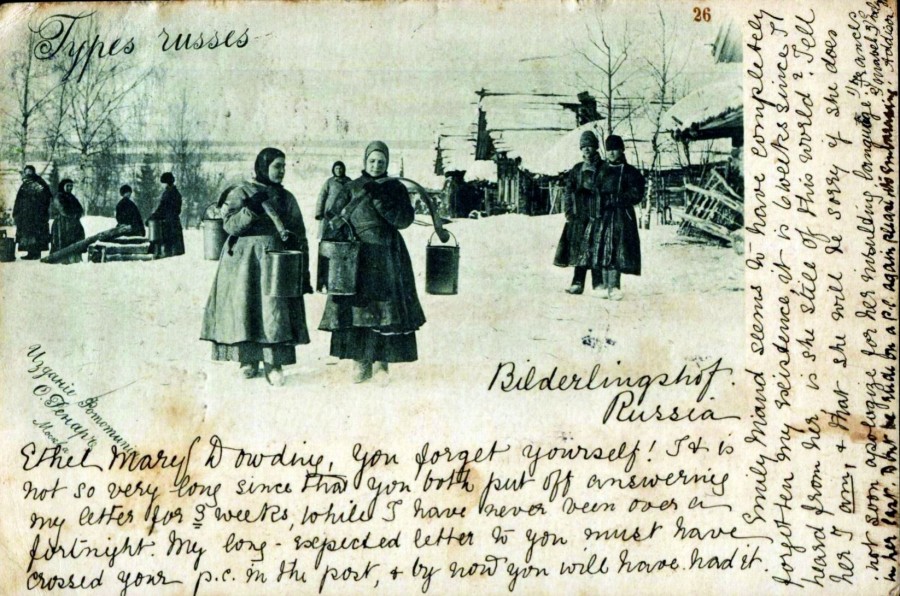 Types russes
26
Изданіе Фототипіи
О. Ренаръ
Москва
Bilderlingshof.
Russia
Ethel Mary Dowding, you forget yourself! It is
not so very long since that you both put off answering
my letter for 5 weeks, while I have never been over a
fortnight. My long-expected letter to you must have
crossed your p.c. in the post, & by now you will have had it.
Emily Maud seems to have completely
forgotten my existence it is 6 weeks since I
heard from her is she still of this world? Tell
her I am, & that she will be sorry if she does
not soon apologize for her insulting language
in her last. Don't be rude on a p.c. again please, it's embarrassing!